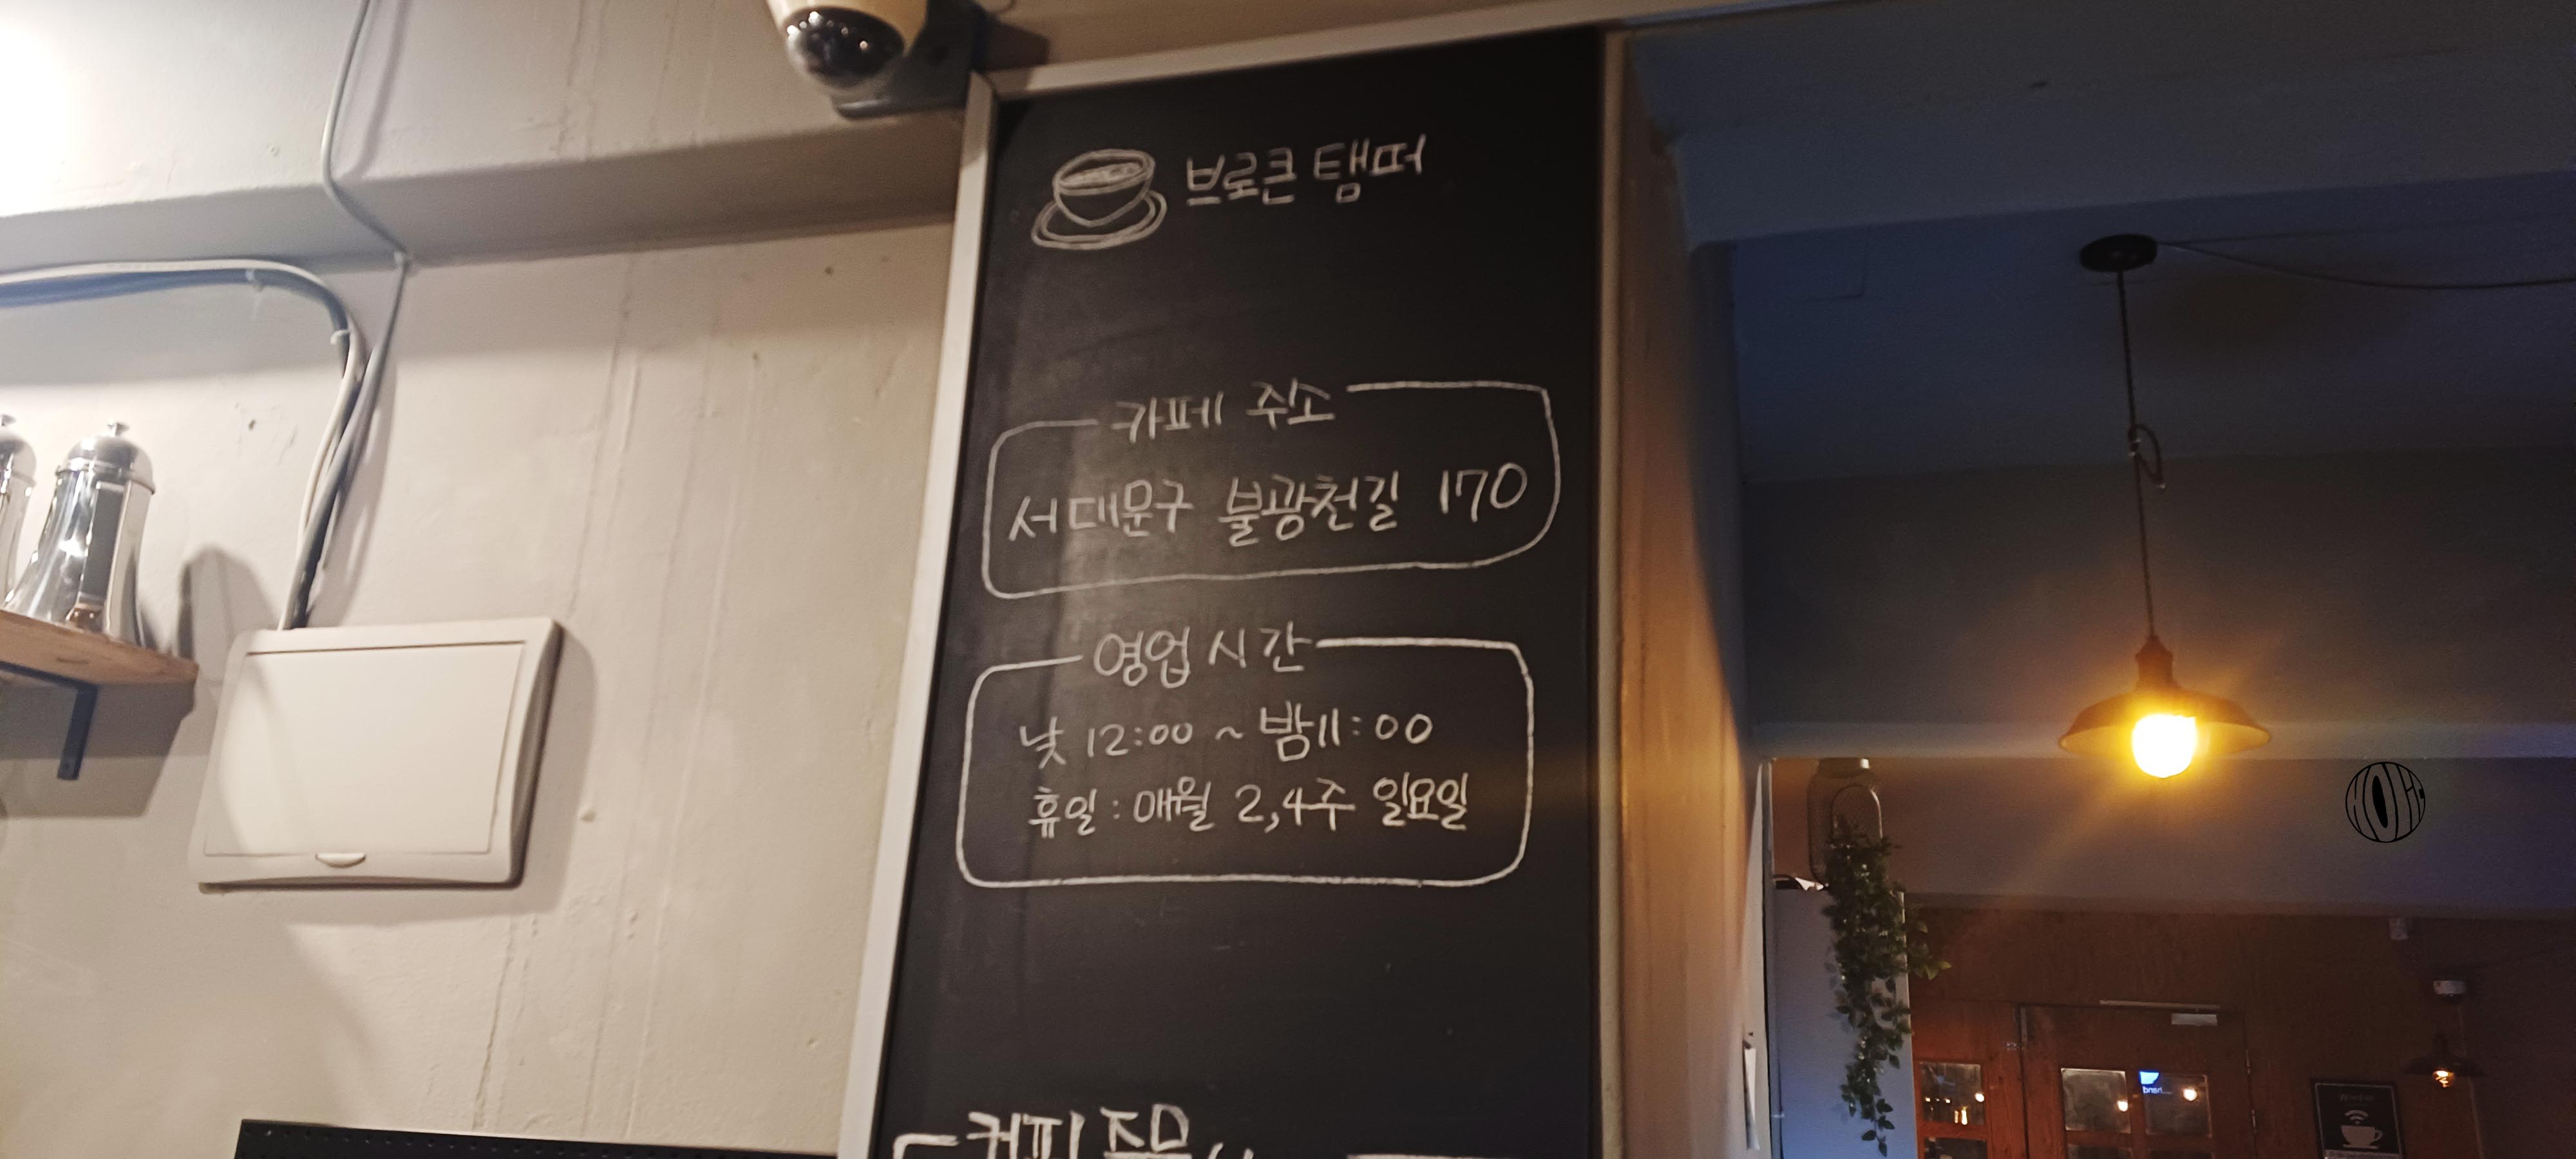 브로큰 탬퍼
카페 주소
서대문구 불광천길 170
영업시간
낮 12:00 ~ 밤 11:00
휴일 : 매월 2,4주 일요일
커피 주문